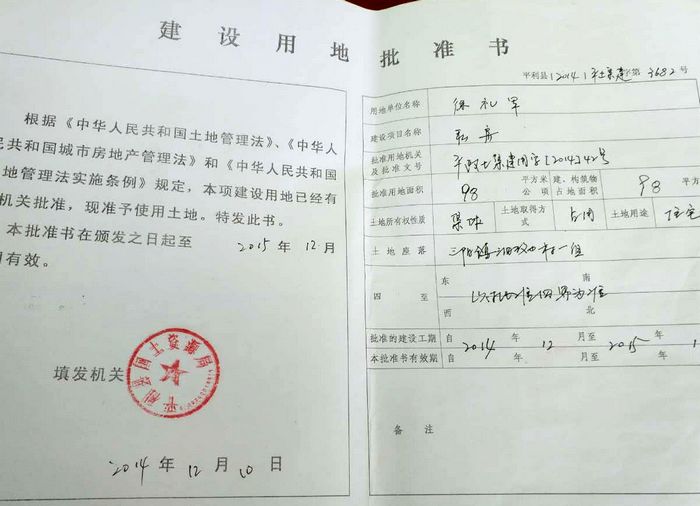 建设用地批准书
根据《中华人民共和国土地管理法》、《中华人
民共和国城市房地产管理法》和《中华人民共和国
地管理法实施条例》规定，本项建设用地已经有
机关批准，现准予使用土地。特发此书。
本批准书在颁发之日起至 2015 年 12 月
有效。
平利县国土资源局
填发机关
2014 年 12 月 10 日
平利县(2014)平土集建字第3682号
用地单位名称 徐礼军
建设项目名称
批准用地机关及批准文号 平政土集建用字[2014]42号
批准用地面积 98 平方米 公顷 建、构筑物占地面积 98 平方
土地所有权性质 集体 土地取得方式 占用 土地用途 住宅
土地座落 三阳镇 村一组
四至 东 南 西 北 以批准四界为准
批准的建设工期 自 2014 年 12 月至 2015 年 1
本批准书有效期 自 年 月至 年
备注